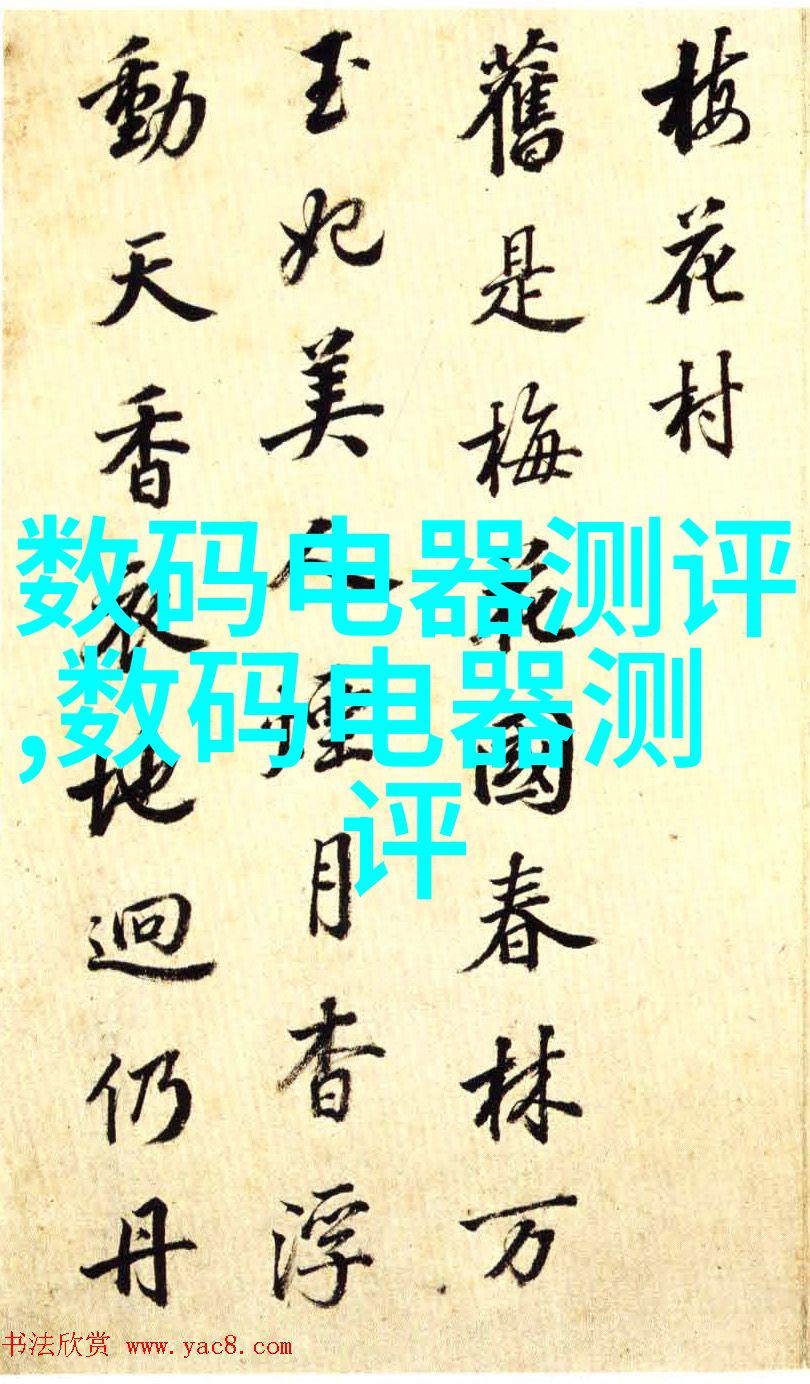 梅花村
舊是梅花國春林万
玉妃美人煙月杳浮
動天香夜地迥仍丹
数码电器测评
,数码电器测
评
书法欣赏 www.yac8.com